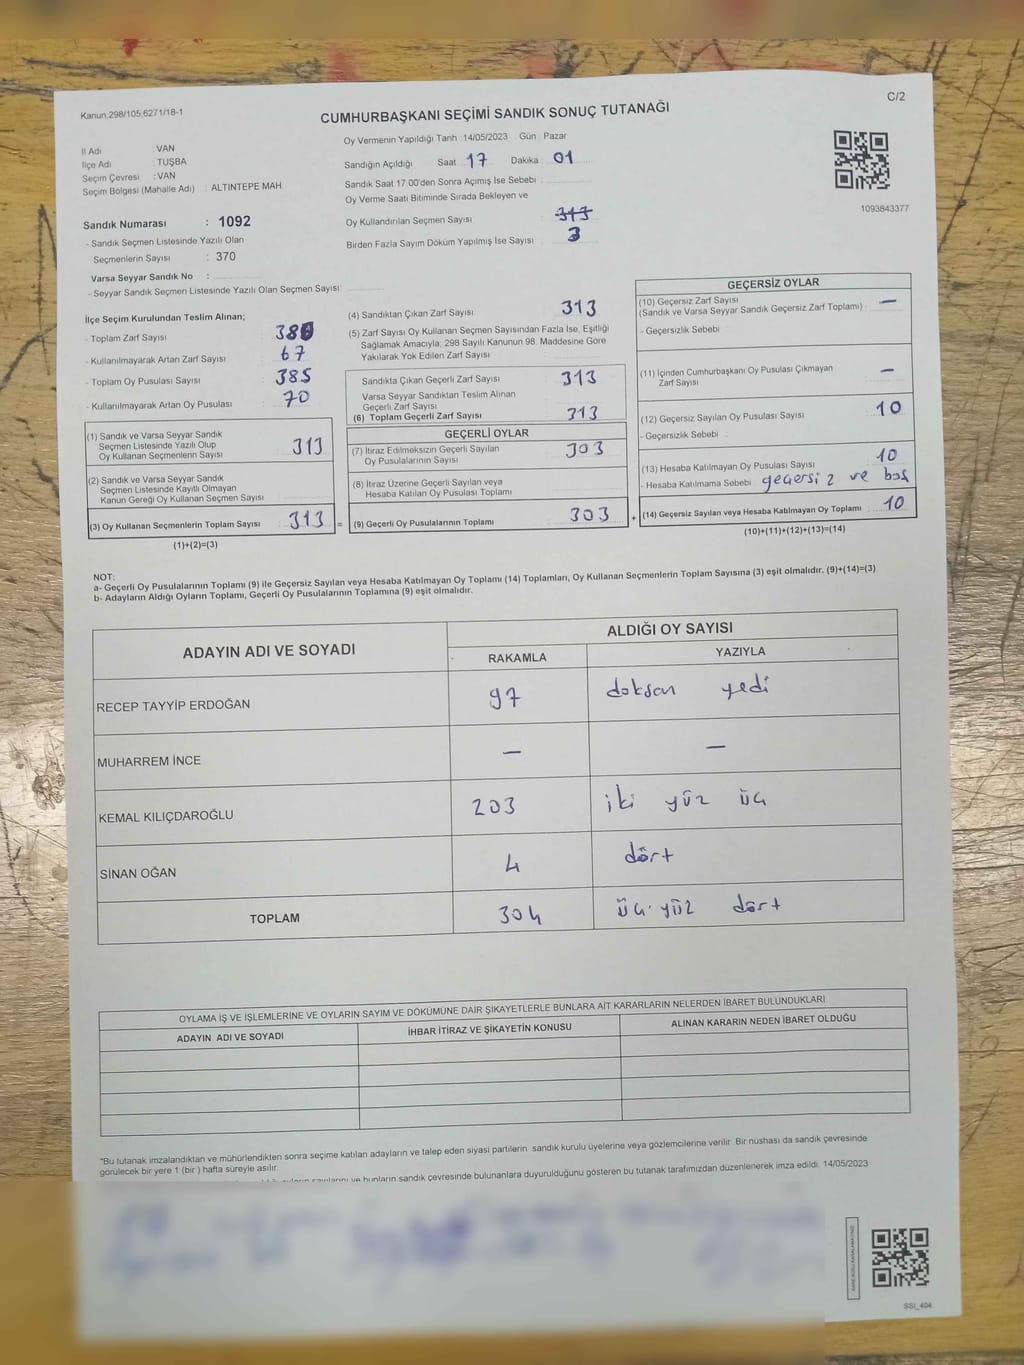 Kanun;298/105,6271/18-1
C/2
CUMHURBAŞKANI SEÇİMİ SANDIK SONUÇ TUTANAĞI
İl Adı : VAN
İlçe Adı : TUŞBA
Seçim Çevresi : VAN
Seçim Bölgesi (Mahalle Adı) : ALTINTEPE MAH
Sandık Numarası : 1092
- Sandık Seçmen Listesinde Yazılı Olan
Seçmenlerin Sayısı : 370
Varsa Seyyar Sandık No :
- Seyyar Sandık Seçmen Listesinde Yazılı Olan Seçmen Sayısı
Oy Vermenin Yapıldığı Tarih :14/05/2023 Gün : Pazar
Sandığın Açıldığı Saat 17 Dakika : 01
Sandık Saat 17:00'den Sonra Açımış İse Sebebi :
Oy Verme Saati Bitiminde Sırada Bekleyen ve
Oy Kullandırılan Seçmen Sayısı 313
Birden Fazla Sayım Döküm Yapılmış İse Sayısı 3
1093843377
İlçe Seçim Kurulundan Teslim Alınan;
- Toplam Zarf Sayısı 380
- Kullanılmayarak Artan Zarf Sayısı 67
- Toplam Oy Pusulası Sayısı 385
- Kullanılmayarak Artan Oy Pusulası 70
(1) Sandık ve Varsa Seyyar Sandık
Seçmen Listesinde Yazılı Olup
Oy Kullanan Seçmenlerin Sayısı 313
(2) Sandık ve Varsa Seyyar Sandık
Seçmen Listesinde Kayıtlı Olmayan
Kanun Gereği Oy Kullanan Seçmen Sayısı
(3) Oy Kullanan Seçmenlerin Toplam Sayısı 313 =
(1)+(2)=(3)
(4) Sandıktan Çıkan Zarf Sayısı 313
(5) Zarf Sayısı Oy Kullanan Seçmen Sayısından Fazla İse, Eşitliği
Sağlamak Amacıyla; 298 Sayılı Kanunun 98. Maddesine Göre
Yakılarak Yok Edilen Zarf Sayısı
Sandıkta Çıkan Geçerli Zarf Sayısı 313
Varsa Seyyar Sandıktan Teslim Alınan
Geçerli Zarf Sayısı
(6) Toplam Geçerli Zarf Sayısı 313
GEÇERLİ OYLAR
(7) İtiraz Edilmeksizin Geçerli Sayılan
Oy Pusulalarının Sayısı 303
(8) İtiraz Üzerine Geçerli Sayılan veya
Hesaba Katılan Oy Pusulası Toplamı
(9) Geçerli Oy Pusulalarının Toplamı 303 +
GEÇERSİZ OYLAR
(10) Geçersiz Zarf Sayısı —
(Sandık ve Varsa Seyyar Sandık Geçersiz Zarf Toplamı) :
- Geçersizlik Sebebi
(11) İçinden Cumhurbaşkanı Oy Pusulası Çıkmayan
Zarf Sayısı —
(12) Geçersiz Sayılan Oy Pusulası Sayısı 10
- Geçersizlik Sebebi :
(13) Hesaba Katılmayan Oy Pusulası Sayısı 10
- Hesaba Katılmama Sebebi : geçersiz ve boş
(14) Geçersiz Sayılan veya Hesaba Katılmayan Oy Toplamı : 10
(10)+(11)+(12)+(13)=(14)
NOT:
a- Geçerli Oy Pusulalarının Toplamı (9) ile Geçersiz Sayılan veya Hesaba Katılmayan Oy Toplamı (14) Toplamları, Oy Kullanan Seçmenlerin Toplam Sayısına (3) eşit olmalıdır. (9)+(14)=(3)
b- Adayların Aldığı Oyların Toplamı, Geçerli Oy Pusulalarının Toplamına (9) eşit olmalıdır.
ADAYIN ADI VE SOYADI
ALDIĞI OY SAYISI
RAKAMLA YAZIYLA
RECEP TAYYİP ERDOĞAN 97 doksan yedi
MUHARREM İNCE — —
KEMAL KILIÇDAROĞLU 203 iki yüz üç
SİNAN OĞAN 4 dört
TOPLAM 304 üç yüz dört
OYLAMA İŞ VE İŞLEMLERİNE VE OYLARIN SAYIM VE DÖKÜMÜNE DAİR ŞİKAYETLERLE BUNLARA AİT KARARLARIN NELERDEN İBARET BULUNDUKLARI
ADAYIN ADI VE SOYADI İHBAR İTİRAZ VE ŞİKAYETİN KONUSU ALINAN KARARIN NEDEN İBARET OLDUĞU
"Bu tutanak imzalandıktan ve mühürlendikten sonra seçime katılan adayların ve talep eden siyasi partilerin sandık kurulu üyelerine veya gözlemcilerine verilir. Bir nüshası da sandık çevresinde
görülecek bir yere 1 (bir ) hafta süreyle asılır.
ve bunların sandık çevresinde bulunanlara duyurulduğunu gösteren bu tutanak tarafımızdan düzenlenerek imza edildi. 14/05/2023
SSİ_404